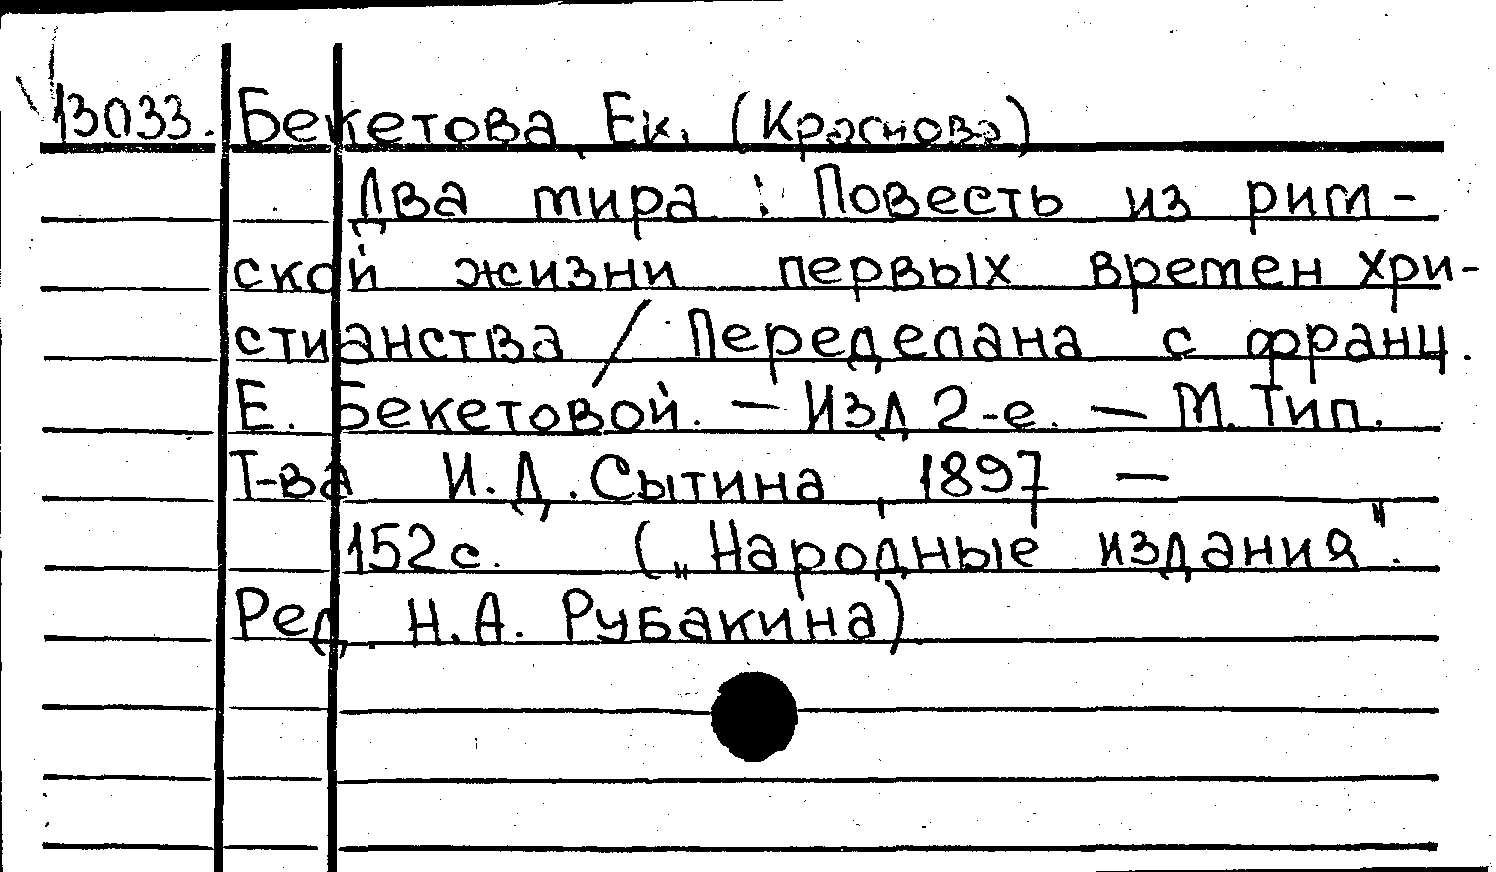 13033. Бекетова, Ек. (Краснова)
Два мира : Повесть из рим-
ской жизни первых времен хри-
стианства / Переделана с франц.
Е. Бекетовой. — Изд 2-е. — М. Тип.
Т-ва И. Д. Сытина, 1897 —
152 с. („Народные издания".
Ред. Н. А. Рубакина)